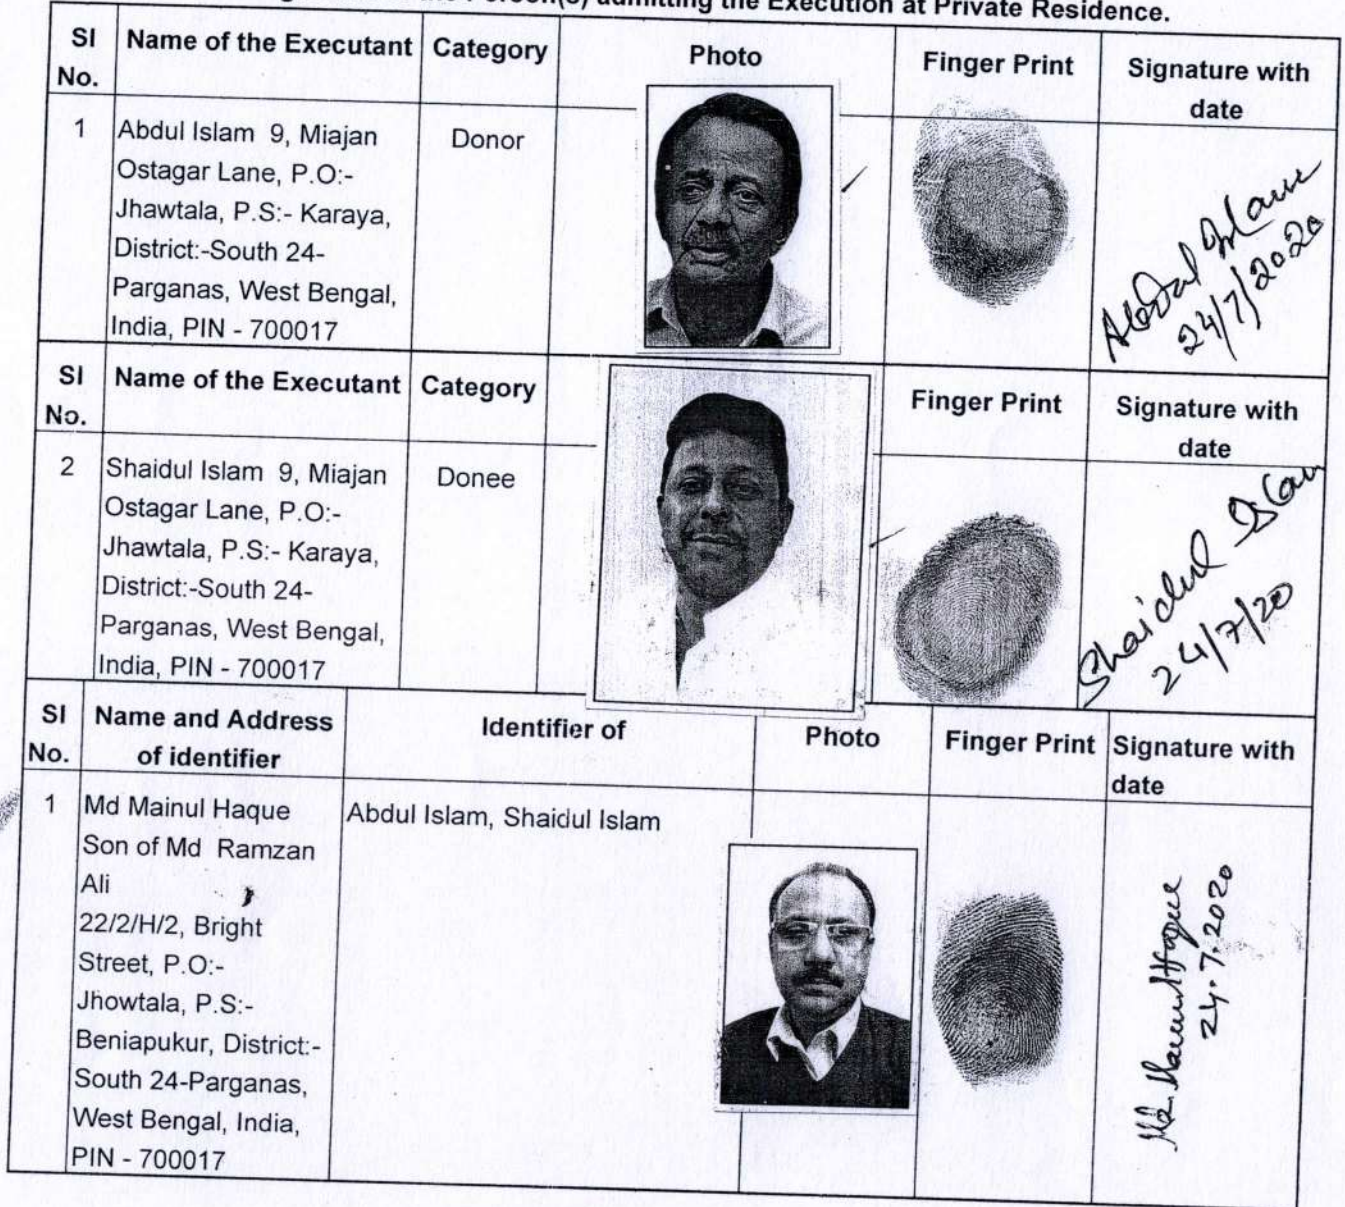 the Person(s) admitting the Execution at Private Residence.
SI No. Name of the Executant Category Photo Finger Print Signature with date
1 Abdul Islam 9, Miajan Donor
Ostagar Lane, P.O:-
Jhawtala, P.S:- Karaya,
District:-South 24-
Parganas, West Bengal,
India, PIN - 700017
Abdul Islam
24/7/2020
SI No. Name of the Executant Category Finger Print Signature with date
2 Shaidul Islam 9, Miajan Donee
Ostagar Lane, P.O:-
Jhawtala, P.S:- Karaya,
District:-South 24-
Parganas, West Bengal,
India, PIN - 700017
Shaidul Islam
24/7/20
SI No. Name and Address of identifier Identifier of Photo Finger Print Signature with date
1 Md Mainul Haque Abdul Islam, Shaidul Islam
Son of Md Ramzan
Ali
22/2/H/2, Bright
Street, P.O:-
Jhowtala, P.S:-
Beniapukur, District:-
South 24-Parganas,
West Bengal, India,
PIN - 700017
Md. Mainul Haque
24.7.2020